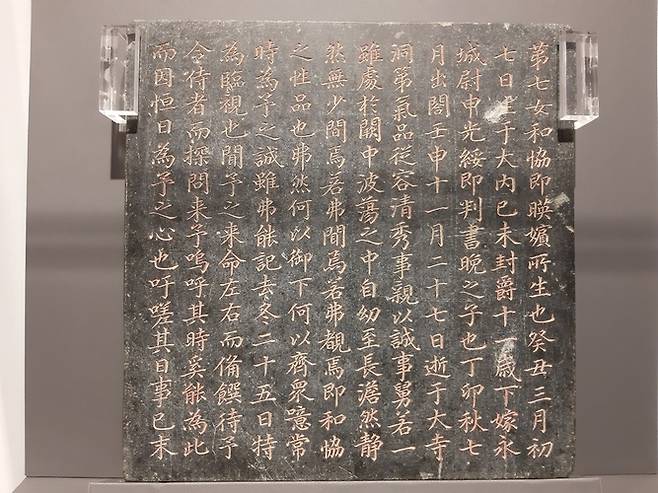 第七女和協即暎嬪所生也癸丑三月初
七日生于大內己未封爵十一歲下嫁永
城尉申光綏即判書晚之子也丁卯秋七
月出閤壬申十一月二十七日逝于大寺
洞第氣品從容清秀事親以誠事舅若一
雖處於闕中波蕩之中自幼至長澹然靜
然無少間焉若弗聞焉若弗覩焉即和恊
之性品也弗然何以御下何以齊衆噫常
時為予之誠雖弗能記去冬二十五日特
為臨視也聞予之来命左右而俻饌待予
令侍者而操問来予嗚呼其時奚能為此
而因恒日為予之心也吁嗟其日事已末